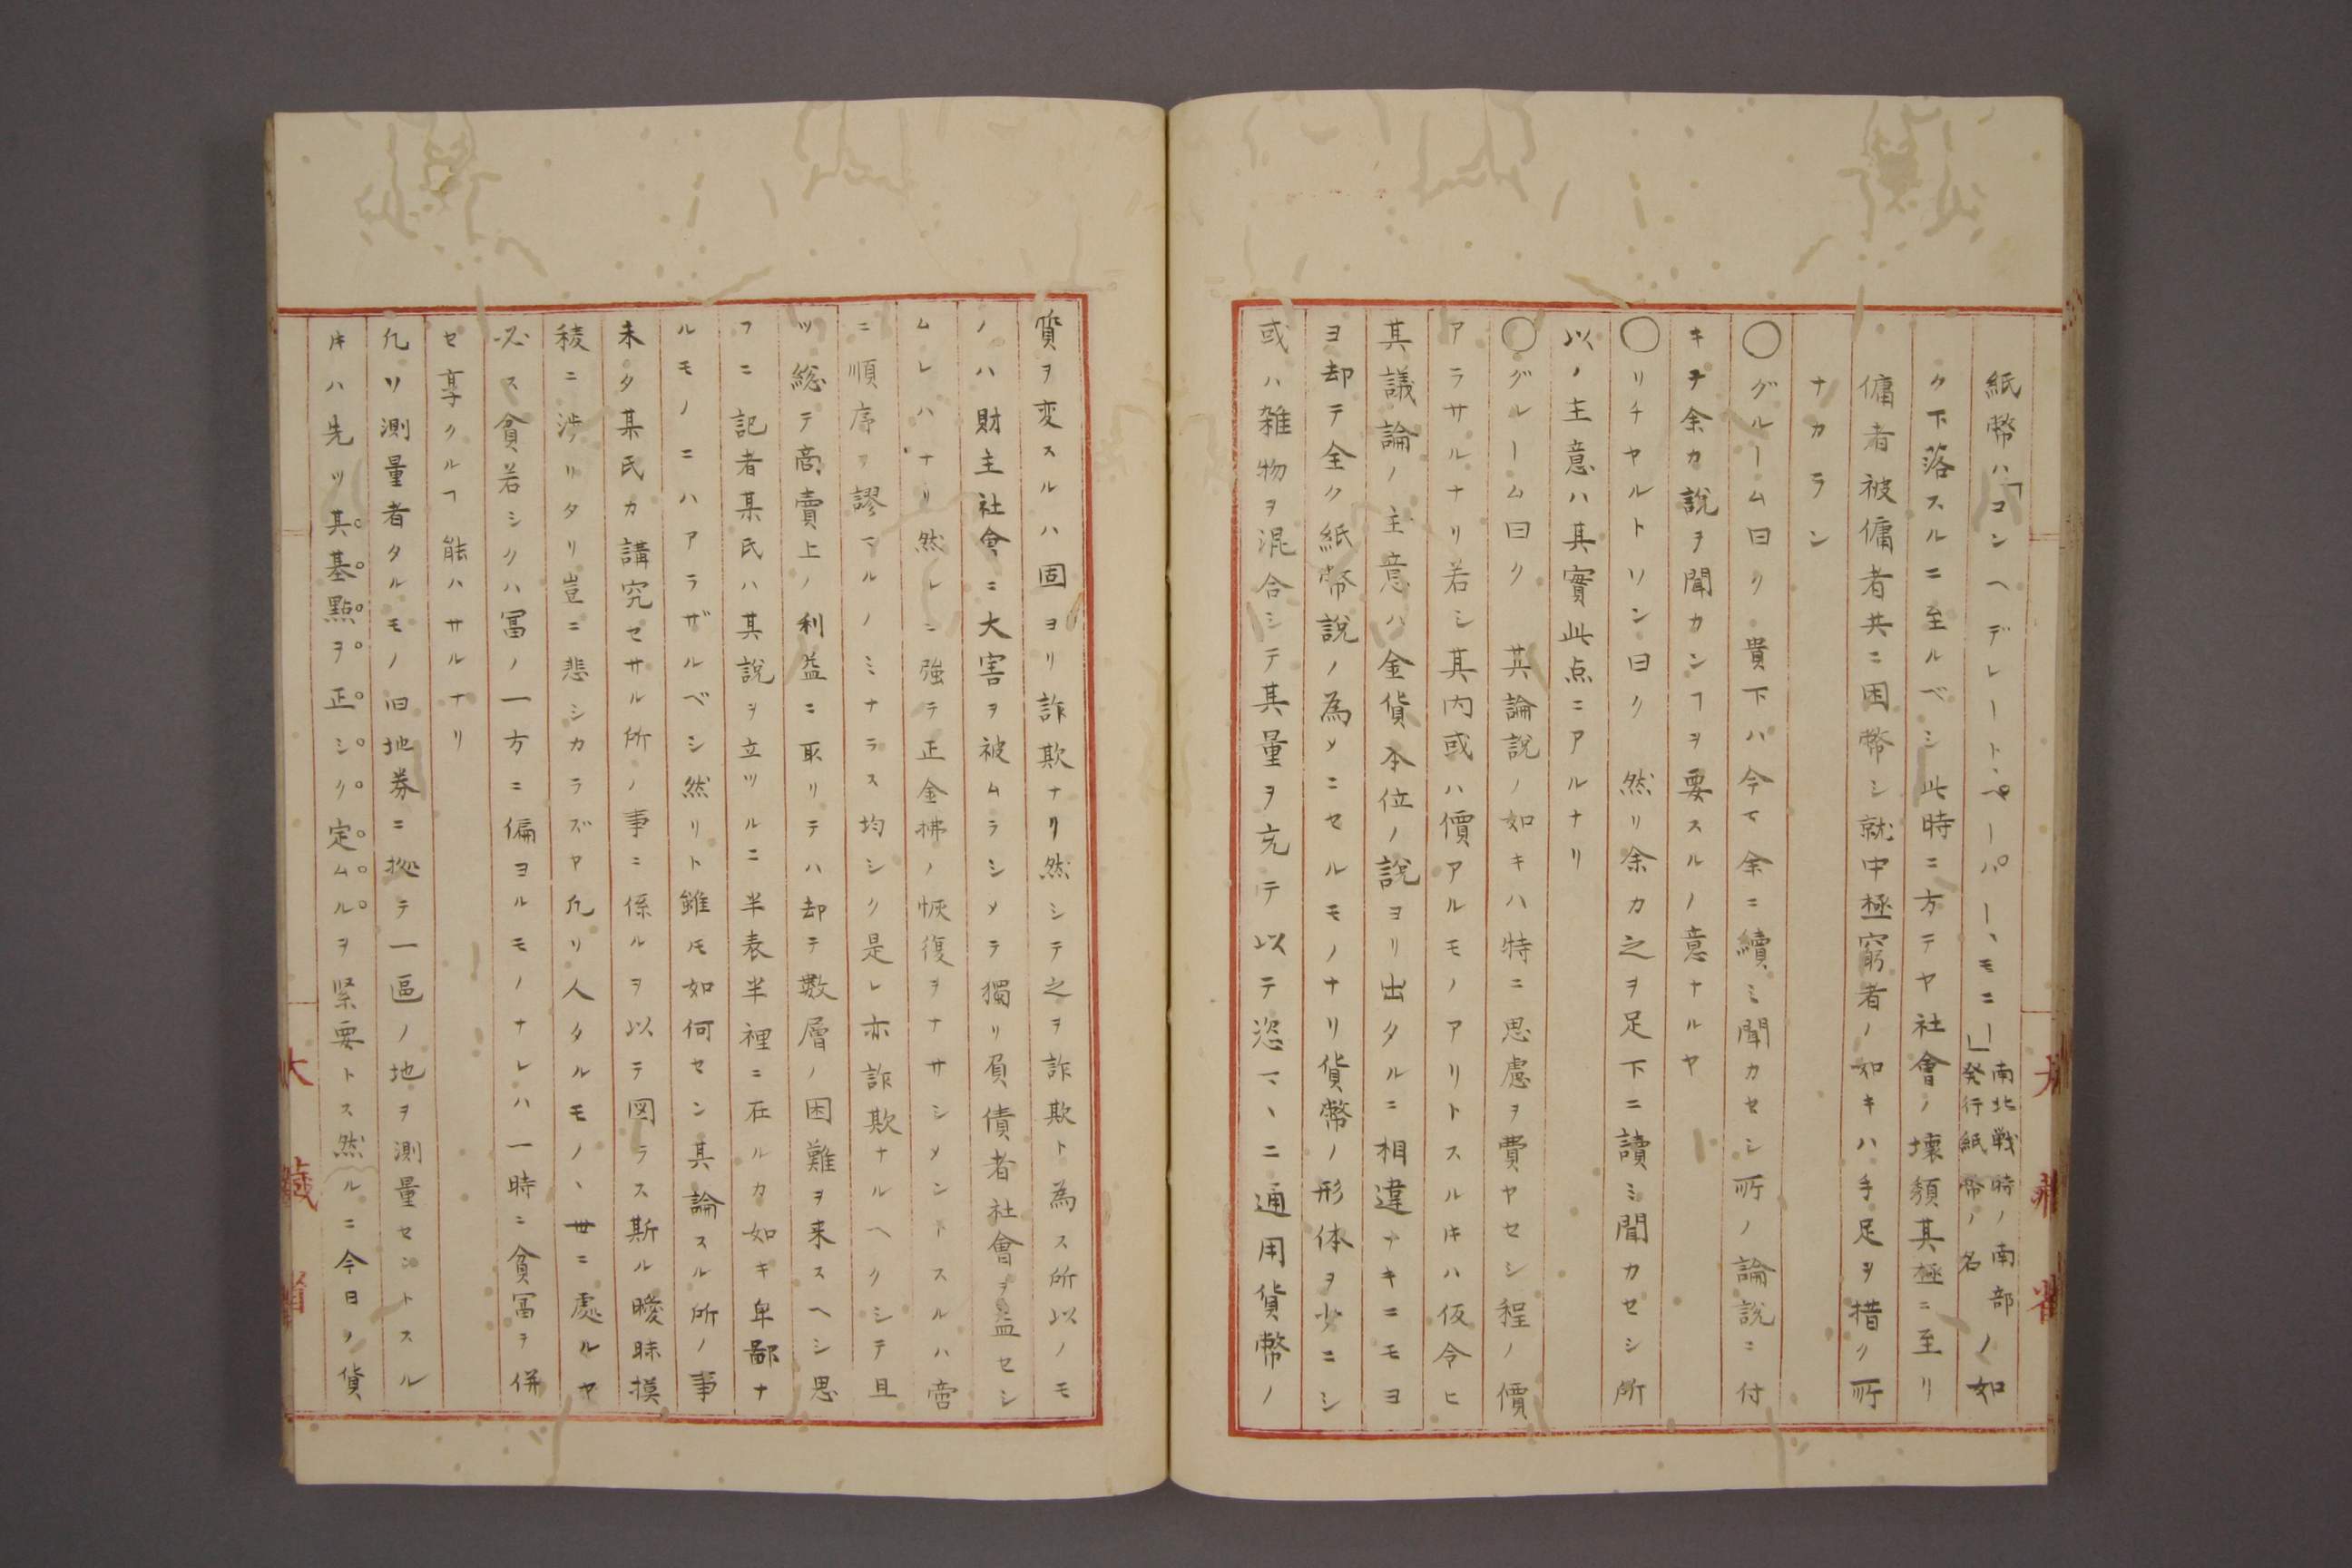 紙幣ハ「コンヘデレート、ペーパー、モニー」南北戦時ノ南部発行紙幣ノ名ノ如
ク下落スルニ至ルベシ此時ニ方テヤ社會ノ壊頽其極ニ至リ
傭者被傭者共ニ困幣シ就中極窮者ノ如キハ手足ヲ措ク所
ナカラン
○グルーム曰ク 貴下ハ今マ余ニ續ミ聞カセシ所ノ論説ニ付
キテ余カ説ヲ聞カンヿヲ要スルノ意ナルヤ
○リチヤルトソン曰ク 然リ余カ之ヲ足下ニ讀ミ聞カセシ所
以ノ主意ハ其實此点ニアルナリ
○グルーム曰ク 其論説ノ如キハ特ニ思慮ヲ費ヤセシ程ノ價
アラサルナリ若シ其内或ハ價アルモノアリトスルキハ仮令ヒ
其議論ノ主意ハ金貨本位ノ説ヨリ出タルニ相違ナキニモヨ
ヨ却テ全ク紙幣説ノ為メニセルモノナリ貨幣ノ形体ヲ少ニシ
或ハ雑物ヲ混合シテ其量ヲ充テ以テ恣マヽニ通用貨幣ノ
質ヲ変スルハ固ヨリ詐欺ナリ然シテ之ヲ詐欺ト為ス所以ノモ
ノハ財主社會ニ大害ヲ被ムラシメテ獨リ負債者社會ヲ益セシ
ムレハナリ然レニ強テ正金拂ノ恢復ヲナサシメントスルハ啻
ニ順序ヲ謬マルノミナラス均シク是レ亦詐欺ナルヘクシテ且
ツ総テ商賣上ノ利益ニ取リテハ却テ數層ノ困難ヲ来スヘシ思
フニ記者某氏ハ其説ヲ立ツルニ半表半裡ニ在ルカ如キ卑鄙ナ
ルモノニハアラザルベシ然リト雖モ如何セン其論スル所ノ事
未タ某氏カ講究セサル所ノ事ニ係ルヲ以テ図ラス斯ル曖昧摸
稜ニ渉リタリ豈ニ悲シカラズヤ凢リ人タルモノヽ世ニ處ルヤ
必ス貧若シクハ冨ノ一方ニ偏ヨルモノナレハ一時ニ貧冨ヲ併
セ享クルヿ能ハサルナリ
凢リ測量者タルモノ旧地券ニ拠テ一區ノ地ヲ測量セントスル
キハ先ツ其基點ヲ正シク定ムルヲ緊要トス然ルニ今日ノ貨
大藏省